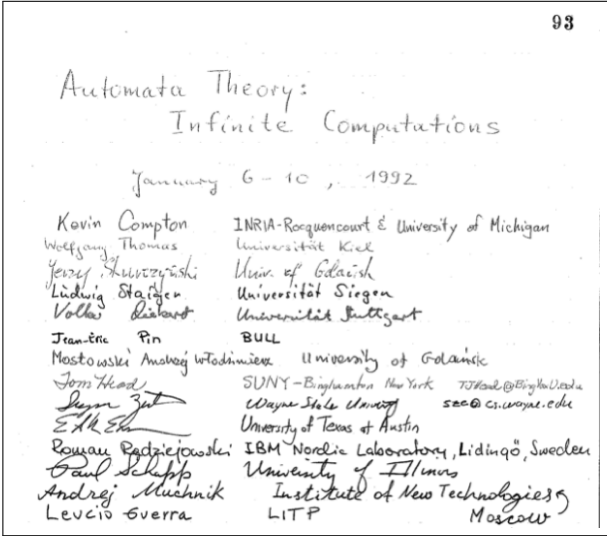 93
Automata Theory:
Infinite Computations
January 6-10, 1992
Kevin Compton INRIA-Rocquencourt & University of Michigan
Wolfgang Thomas Universität Kiel
Jerzy Univ. of Gdańsk
Ludwig Staiger Universität Siegen
Volker Diekert Universität Stuttgart
Jean-Éric Pin BULL
Mostowski Andrzej Włodzimierz University of Gdańsk
Tom Head SUNY-Binghamton New York
Wayne State University @cs.wayne.edu
University of Texas at Austin
Roman Redziejowski IBM Nordic Laboratory, Lidingö, Sweden
Paul Schupp University of Illinois
Andrej Muchnik Institute of New Technologies,
Leucio Guerra LITP Moscow